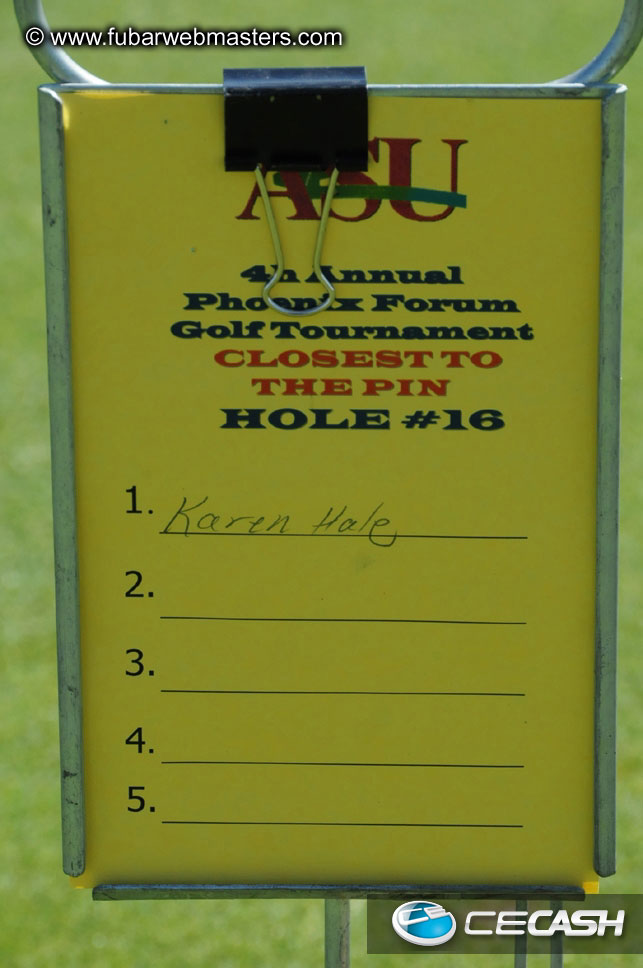 © www.fubarwebmasters.com
ASU
4h Annual
Phoenix Forum
Golf Tournament
CLOSEST TO
THE PIN
HOLE #16
1. Karen Hale
2.
3.
4.
5.
CECASH